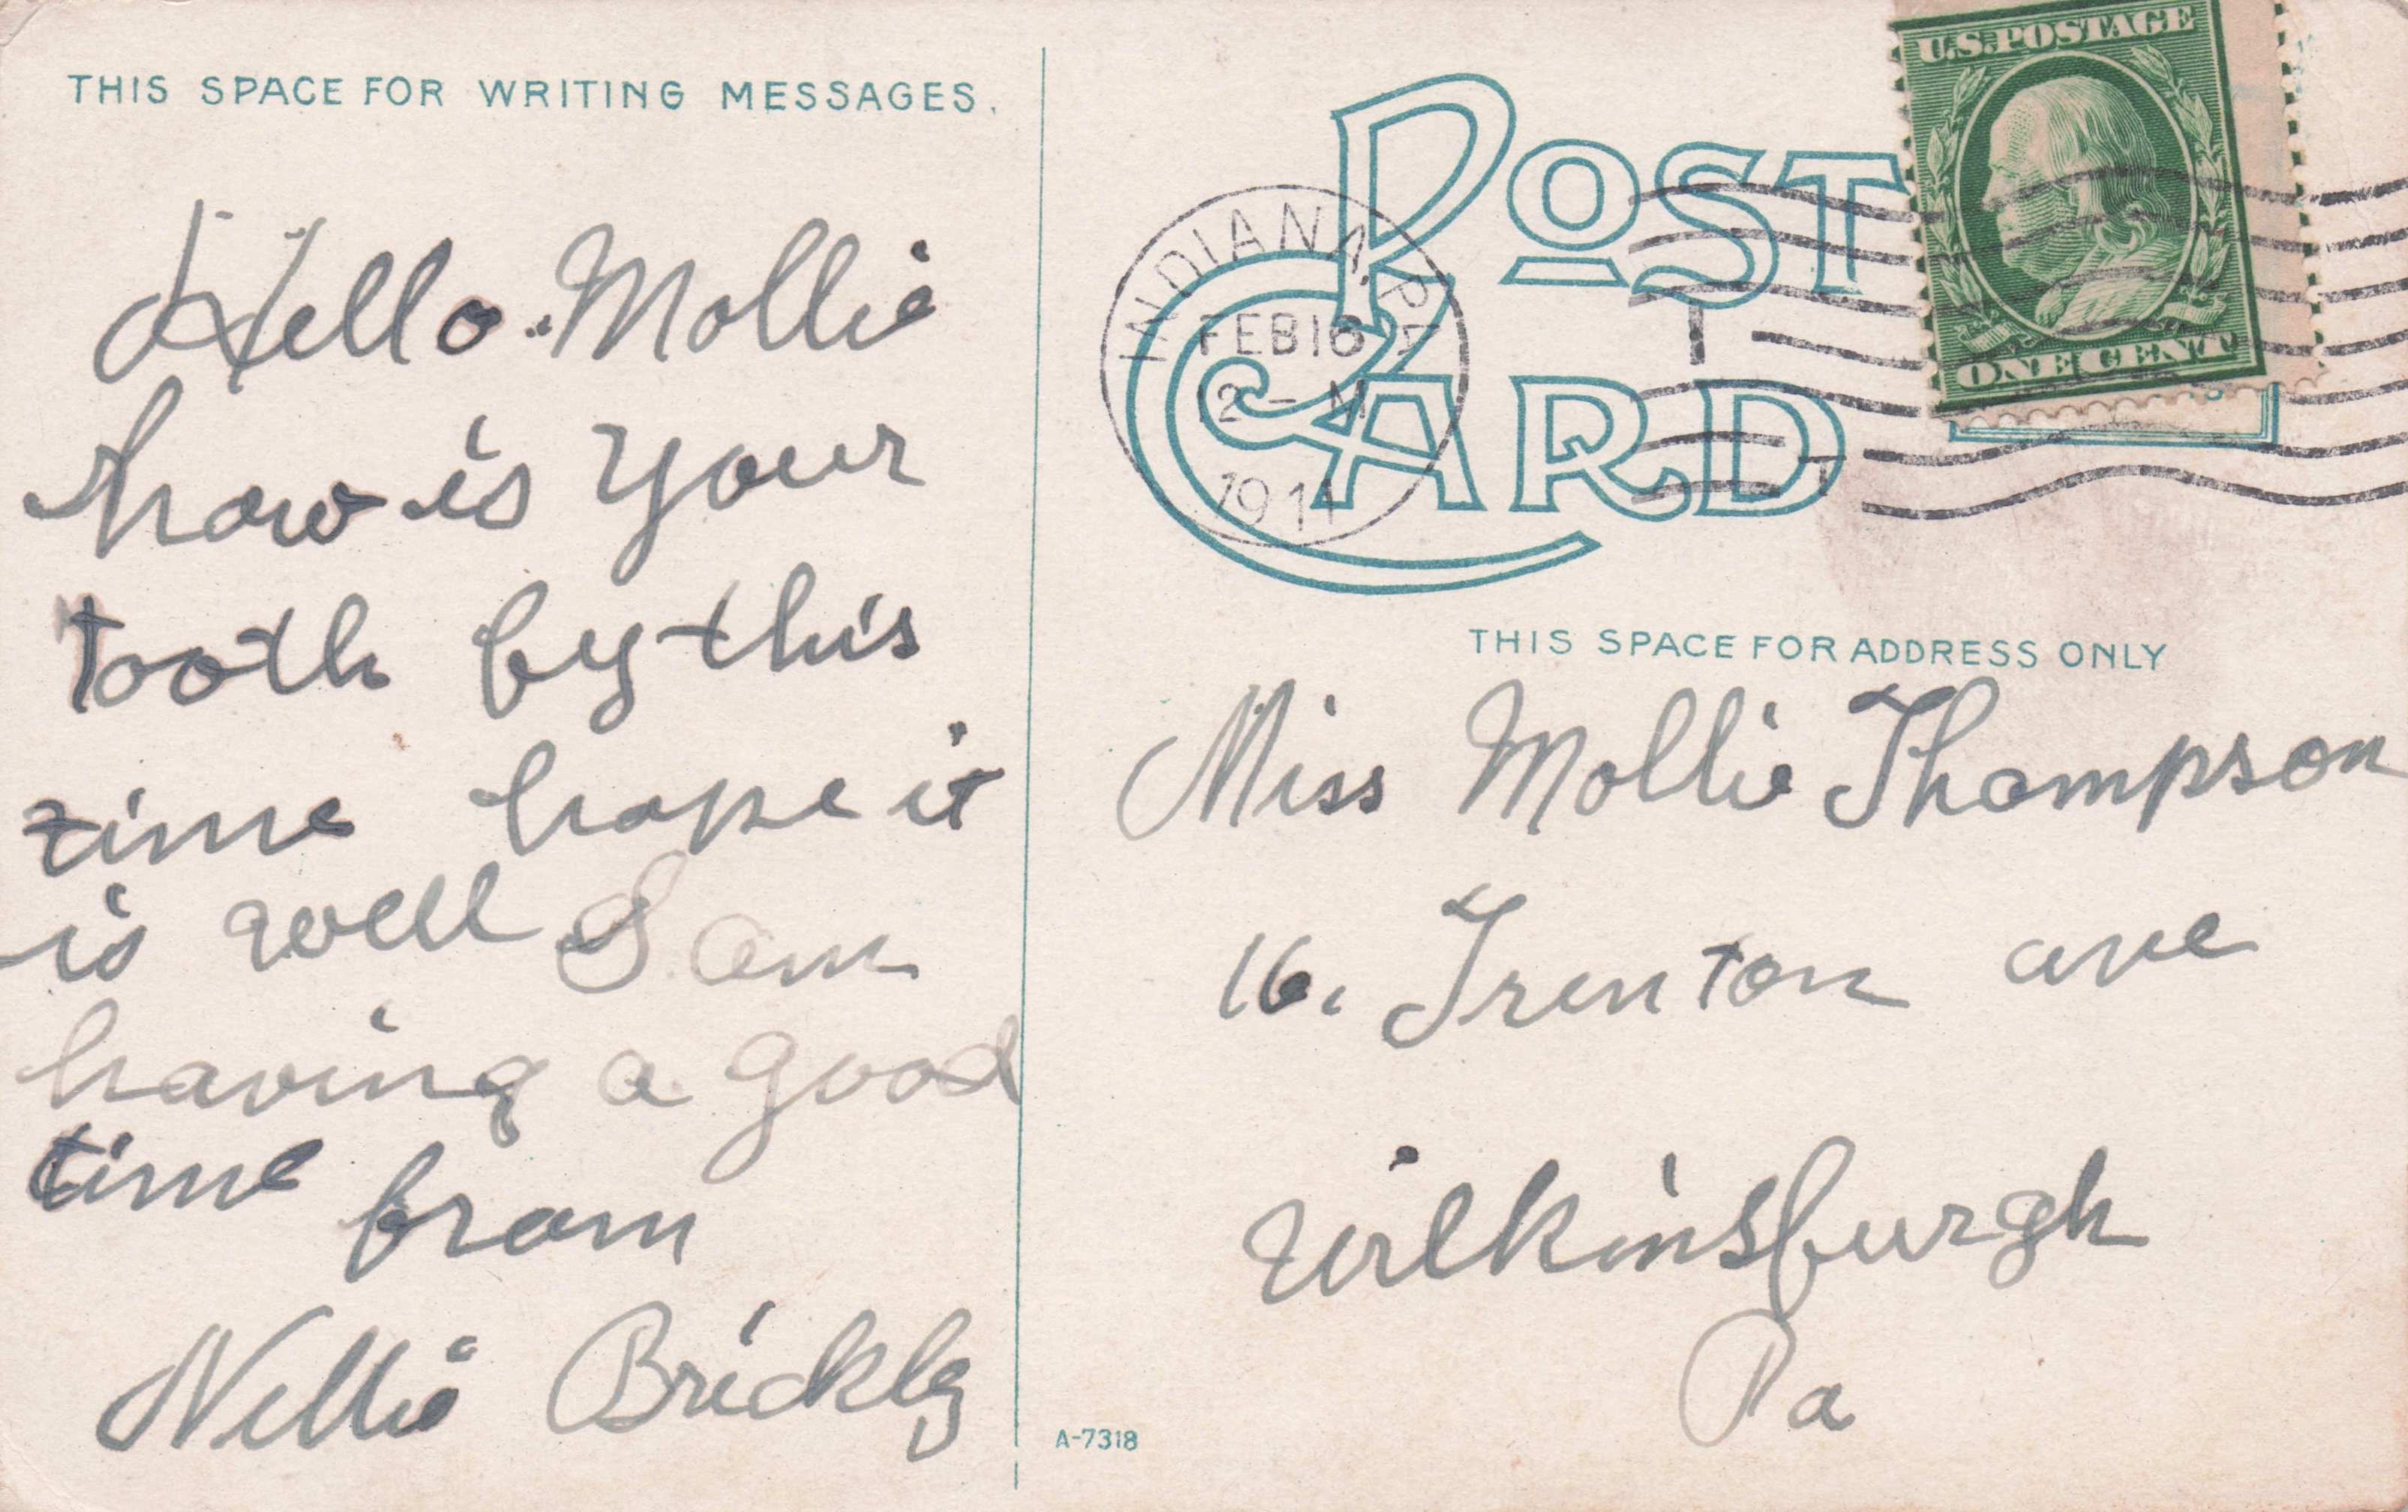 THIS SPACE FOR WRITING MESSAGES.
Hello. Mollie
how is your
tooth by this
time hope it
is well I am
having a good
time from
Nellie Brickly
POST CARD
INDIANA, PA
FEB 16
12 - M
1911
1
U.S. POSTAGE
ONE CENT
THIS SPACE FOR ADDRESS ONLY
Miss Mollie Thompson
16. Trenton ave
Wilkinsburgh
Pa
A-7318